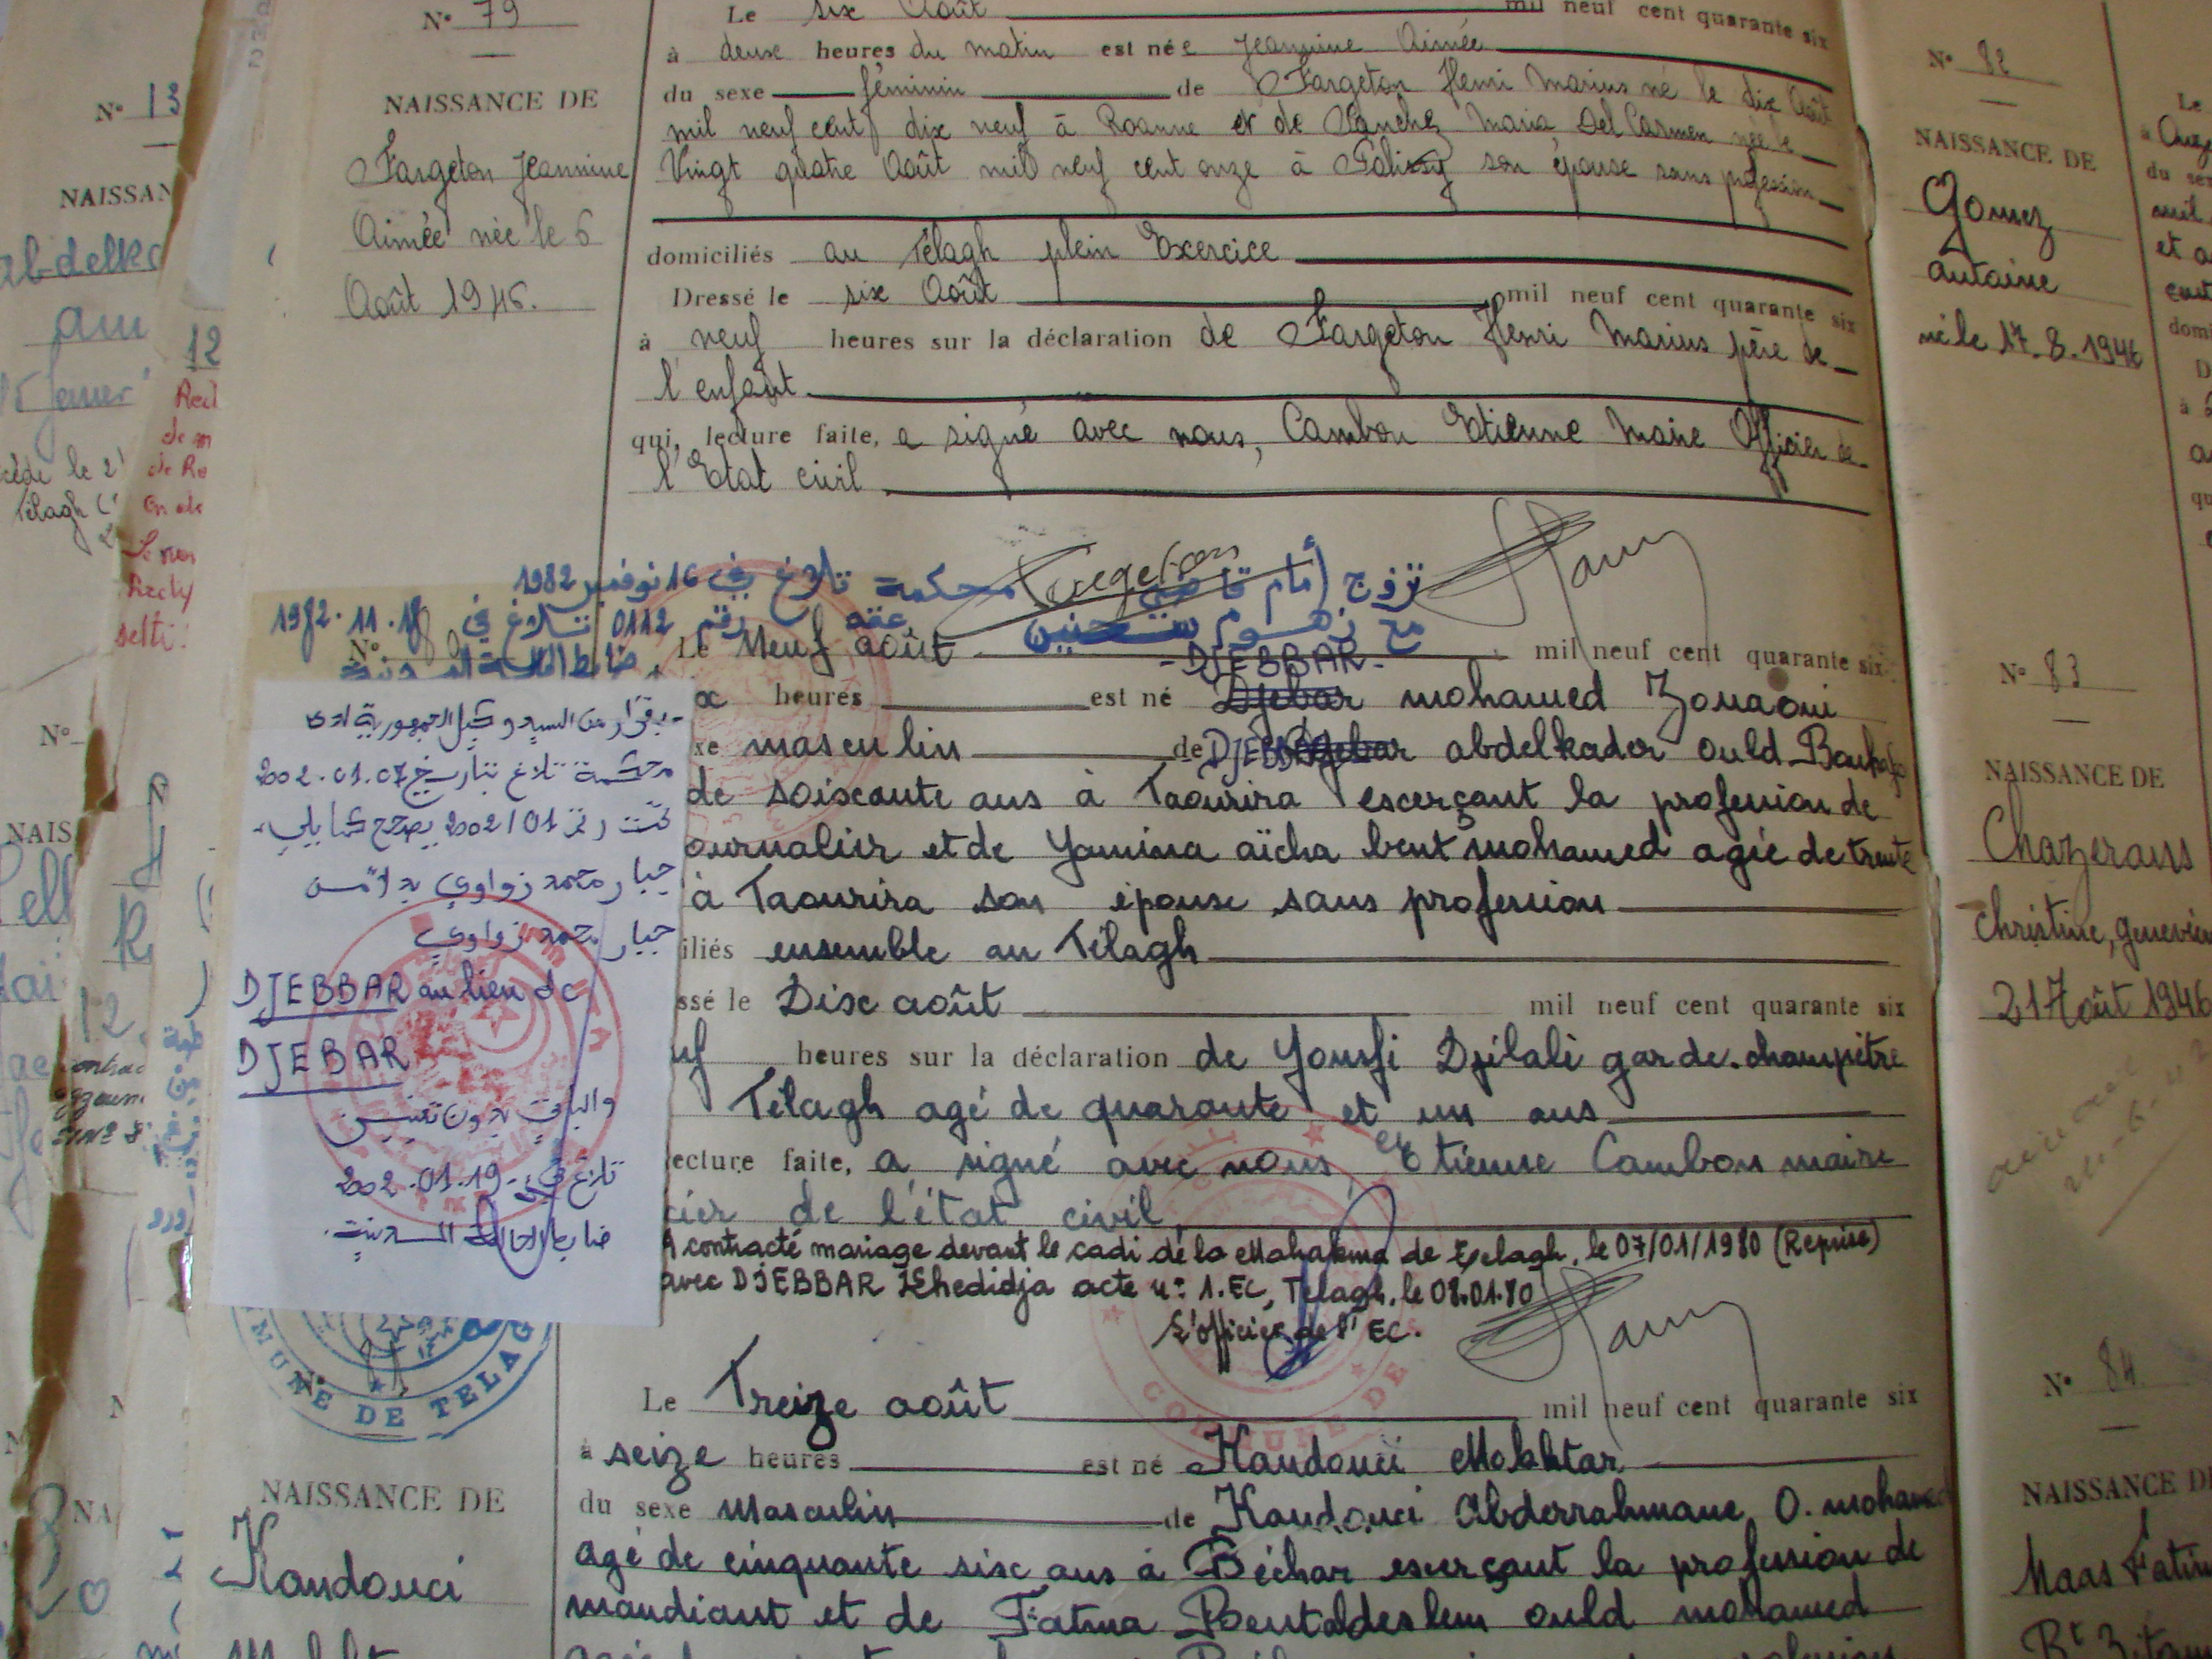 N° 79
NAISSANCE DE
Fargeton Jeannine
Aimée née le 6
Août 1946.
Le six Août mil neuf cent quarante six
à deux heures du matin est née Jeannine Aimée
du sexe féminin de Fargeton Henri Marius né le dix Août
mil neuf cent dix neuf à Roanne et de Sanchez Maria Del Carmen née le
Vingt quatre Août mil neuf cent onze à son épouse sans profession
domiciliés au Télagh plein Exercice
Dressé le six Août mil neuf cent quarante six
à neuf heures sur la déclaration de Fargeton Henri Marius père de
l'enfant
qui, lecture faite, a signé avec nous, Cambon Etienne Maire Officier de
l'Etat civil
Fargeton
تزوج أمام قاضي محكمة تلاغ في 16 نوفمبر 1982
مع زهوم عقد رقم 0112 تلاغ في 18.11.1982
ضابط الحالة المدنية
N°
Le Neuf août mil neuf cent quarante six
- DJEBBAR -
x heures est né Djebar mohamed Zouaoui
xe masculin de DJEBBAR Djebar abdelkader ould
de soixante ans à Taourira exerçant la profession de
ournalier et de Yamina aïcha bent mohamed agée de trente
à Taourira son épouse sans profession
iliés ensemble au Télagh
ssé le Dix août mil neuf cent quarante six
uf heures sur la déclaration de Yousfi Djilali garde-champêtre
Télagh agé de quarante et un ans
ecture faite, a signé avec nous, Etienne Cambon maire
cier de l'état civil
A contracté mariage devant le cadi de la Mahakma de Telagh, le 07/01/1980 (Reprise)
avec DJEBBAR Khedidja acte n° 1. EC, Telagh, le 08.01.80
L'officier de l'EC.
بقرار من السيد وكيل الجمهورية لدى
محكمة تلاغ بتاريخ 2002.01.07
تحت رقم 2002/01 يصحح كما يلي
جبار محمد زواوي بدلا من
جبار محمد زواوي
DJEBBAR au lieu de
DJEBAR
والباقي بدون تغيير
تلاغ في 2002.01.19
ضابط الحالة المدنية
MUNE DE TELAG
COMMUNE DE
N°
NAISSANCE DE
Kandouci
Le Treize août mil neuf cent quarante six
à seize heures est né Kandouci Mokhtar
du sexe Masculin de Kandouci Abderrahmane O. mohamed
agé de cinquante six ans à Béchar exerçant la profession de
mandiant et de Fatma ould mohamed
N° 82
NAISSANCE DE
Gomez
antoine
né le 17.8.1946
N° 83
NAISSANCE DE
Chazerans
Christine, Geneviè
21 Août 1946
N° 84
NAISSANCE DE
Maas Fatm
N° 13
NAISSAN
abdelka
N°
NAIS
12